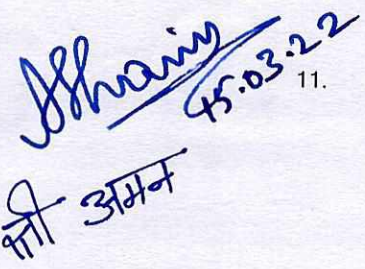 15.03.22
11.
श्री अमन